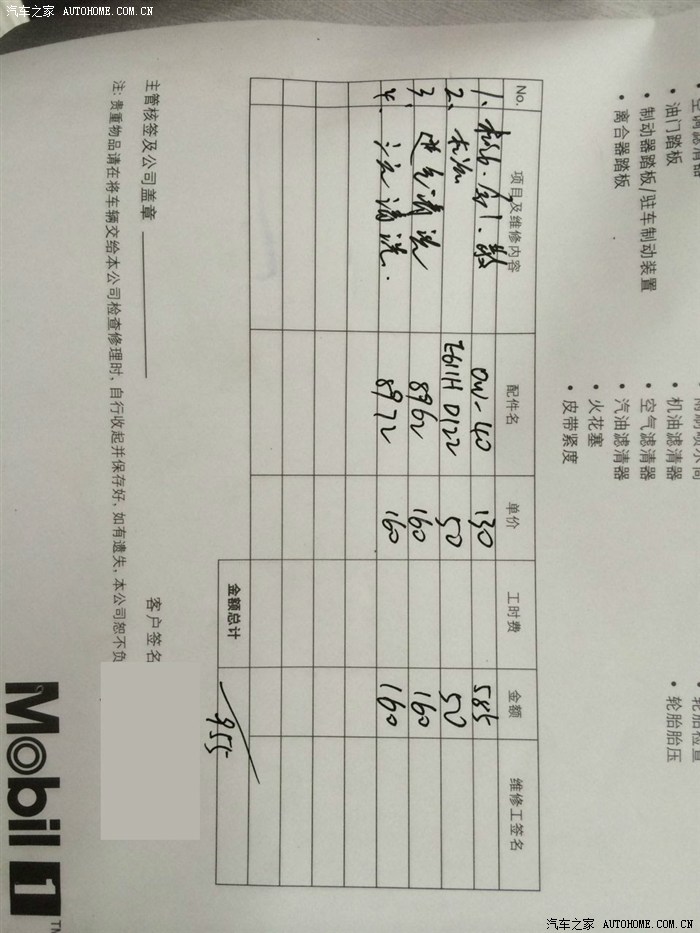 汽车之家 AUTOHOME.COM.CN
空调滤清器
• 油门踏板
• 制动器踏板/驻车制动装置
• 离合器踏板
• 机油滤清器
• 空气滤清器
• 汽油滤清器
• 火花塞
• 皮带紧度
• 轮胎检查
• 轮胎胎压
No. 项目及维修内容 配件名 单价 工时费 金额 维修工签名
1. 0W-40 130 585
2. 机滤 Z611H 0122 50 50
3. 进气清洗 8962 160 160
4. 清洗. 8972 160 160
金额总计 955
主管核签及公司盖章 客户签名
注: 贵重物品请在将车辆交给本公司检查修理时, 自行收起并保存好, 如有遗失, 本公司恕不负
Mobil 1 TM
汽车之家 AUTOHOME.COM.CN